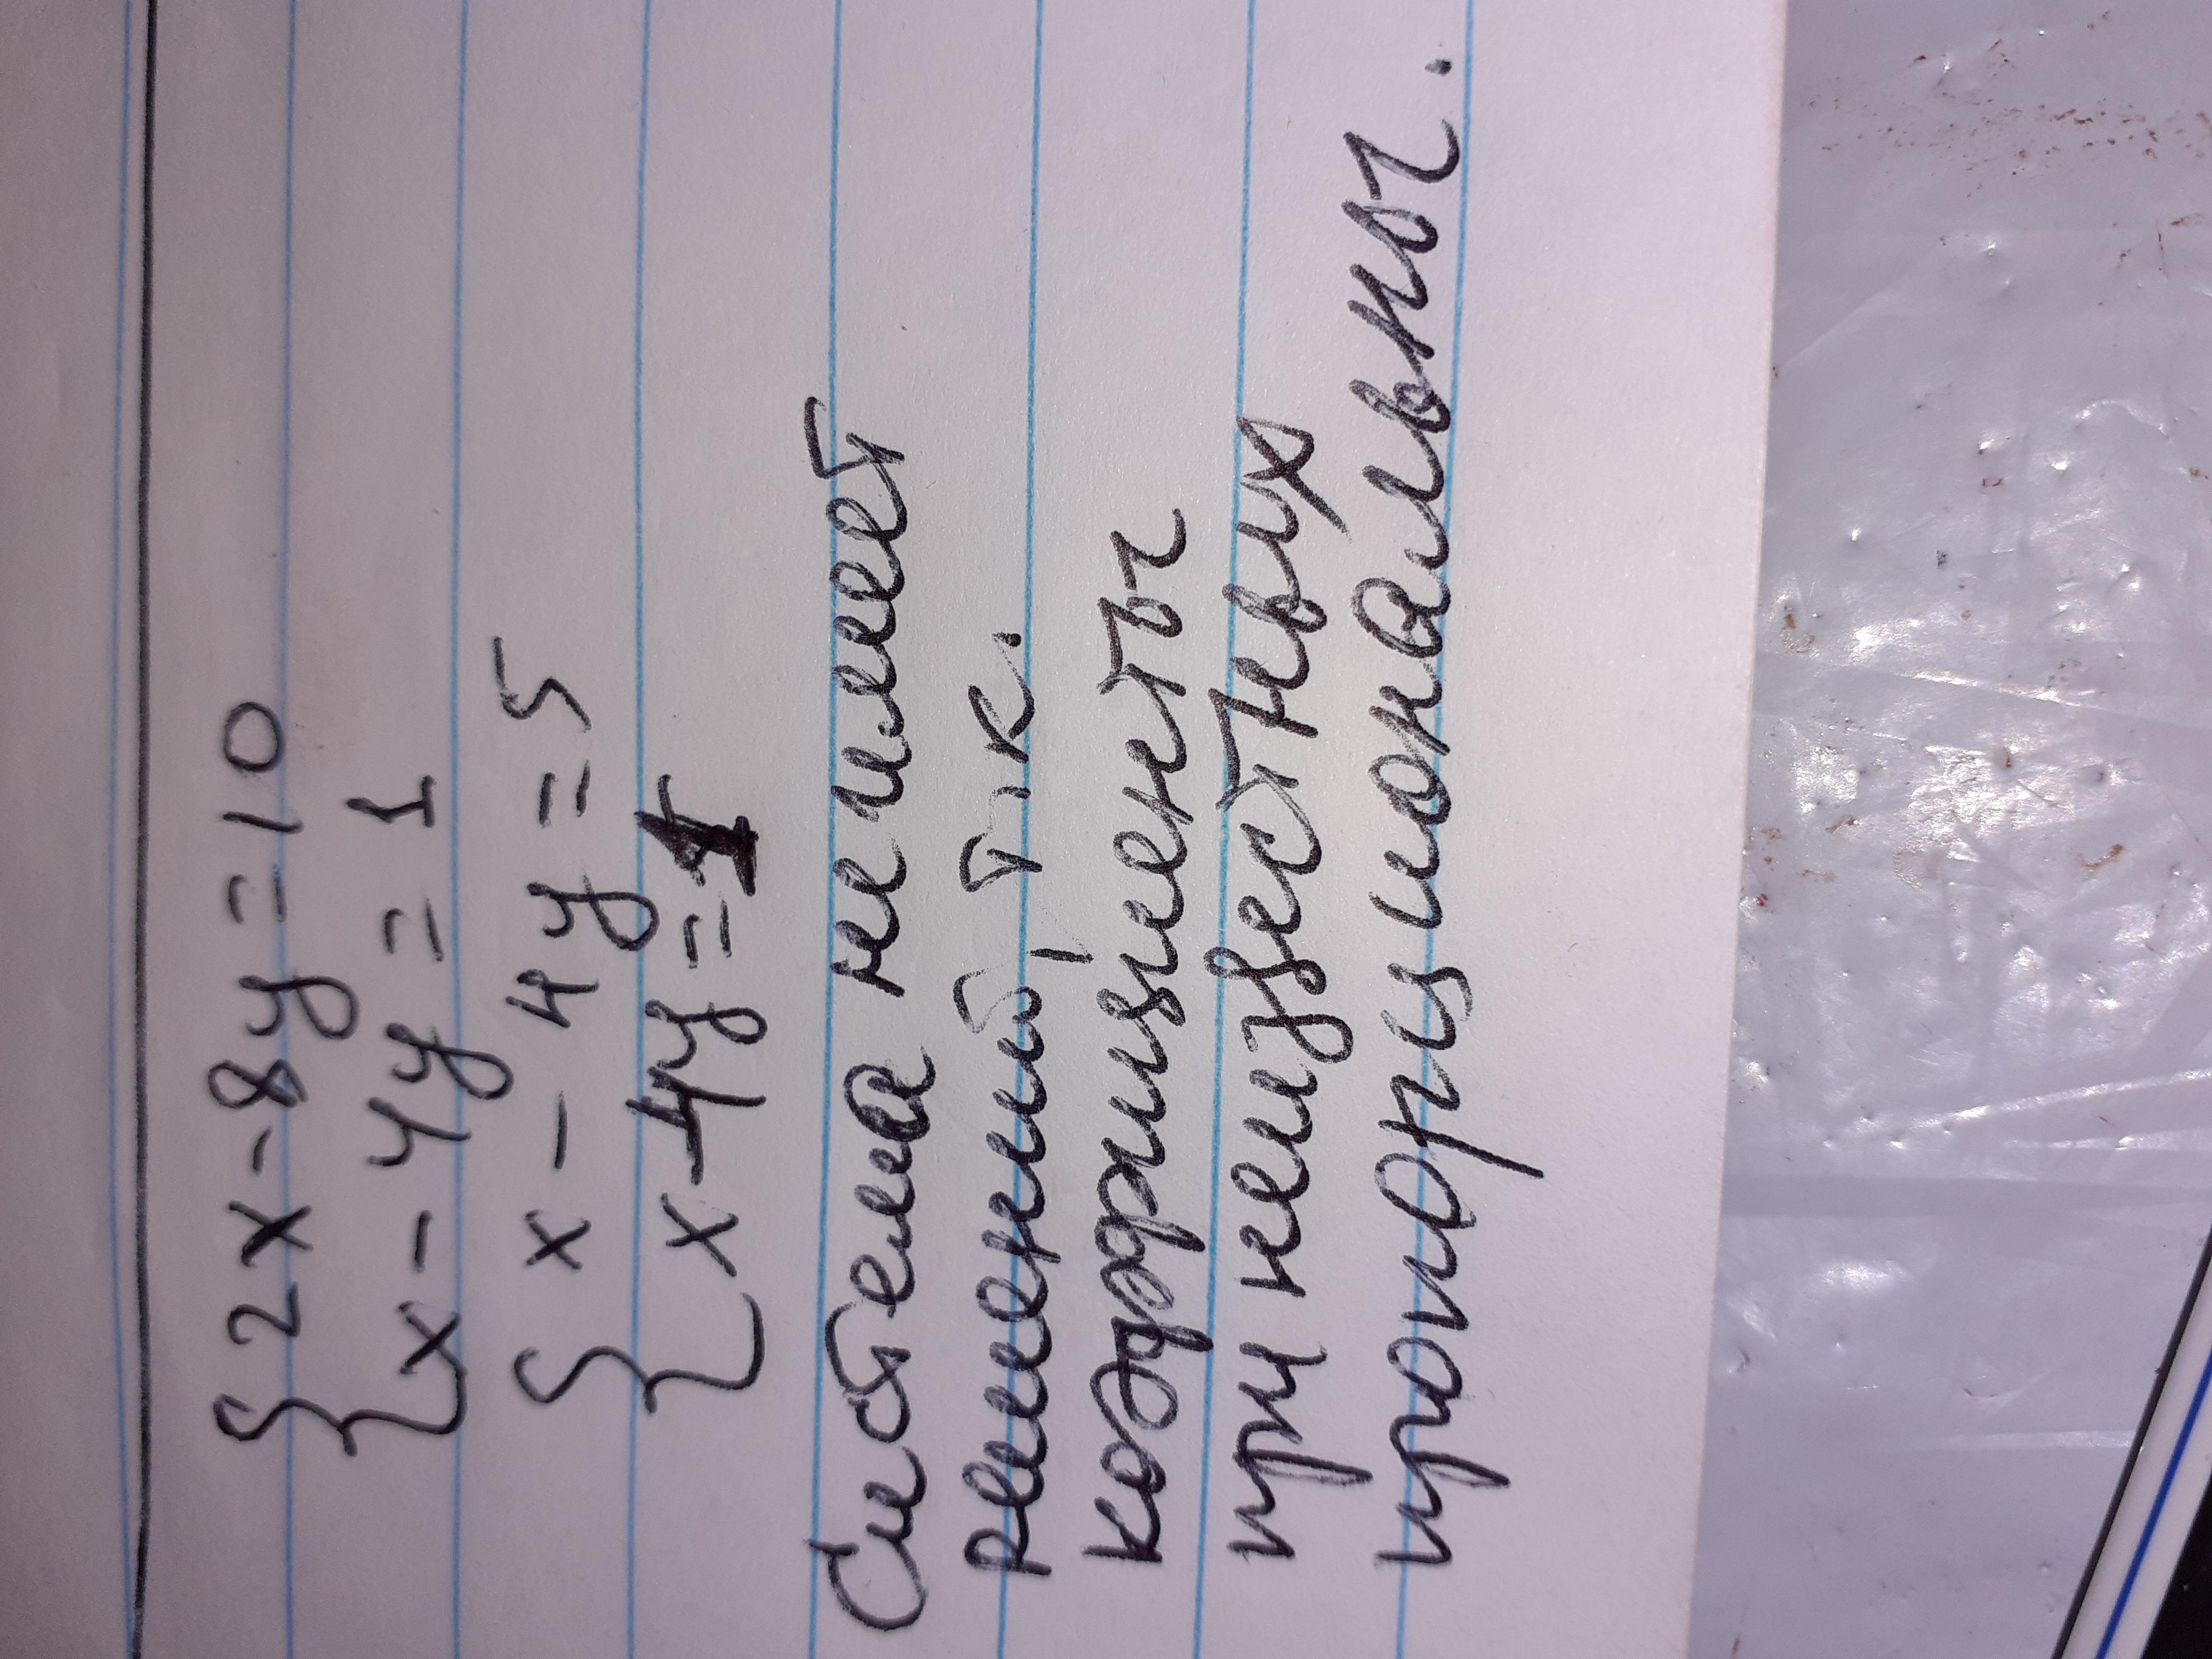 {2x-8y=10
{x-4y=1
{x-4y=5
{x-4y=1
Система не имеет
решений, т.к.
коэффициенты
при неизвестных
пропорциональны.